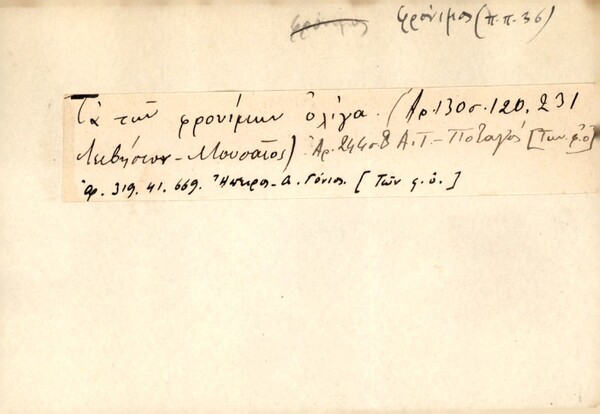 φρόνιμος φρόνιμος (π.π. 36)
Τὰ τῶν φρονίμων ὀλίγα. (Αρ. 130 σ. 120, 231
Λιβήσιον - Μουσαῖος) Ἀρ. 244 σ. 8 Α.Τ. - Ποταγός [Των φ. ὀ]
ἀρ. 319. 41. 669. Ἤπειρος - Δ. Γόνιος. [Τῶν φ. ὀ.]